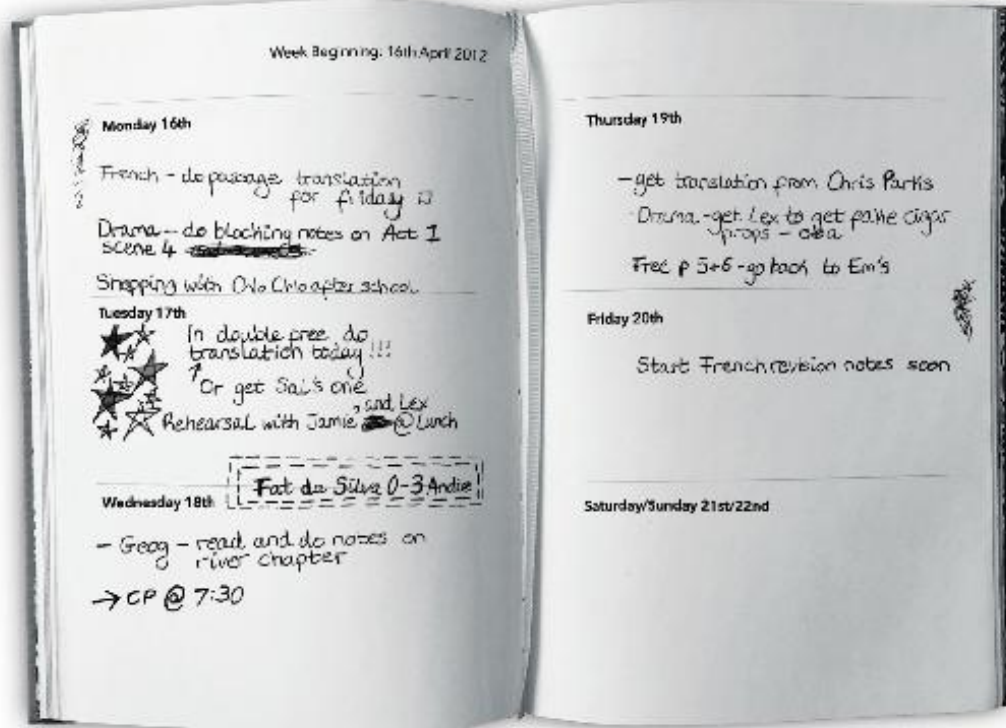 Week Beginning: 16th April 2012
Monday 16th
French - do passage translation
for friday
Drama - do blocking notes on Act 1
scene 4
Shopping with Chlo after school
Tuesday 17th
In double free do
translation today!!!
Or get Sal's one
and Lex
Rehearsal with Jamie @ Lunch
Fat da Silva 0-3 Andie
Wednesday 18th
- Geog - read and do notes on
river chapter
→ CP @ 7:30
Thursday 19th
- get translation from Chris Parks
Drama - get Lex to get fake cigar
props -
Free p 5+6 - go back to Em's
Friday 20th
Start French revision notes soon
Saturday/Sunday 21st/22nd